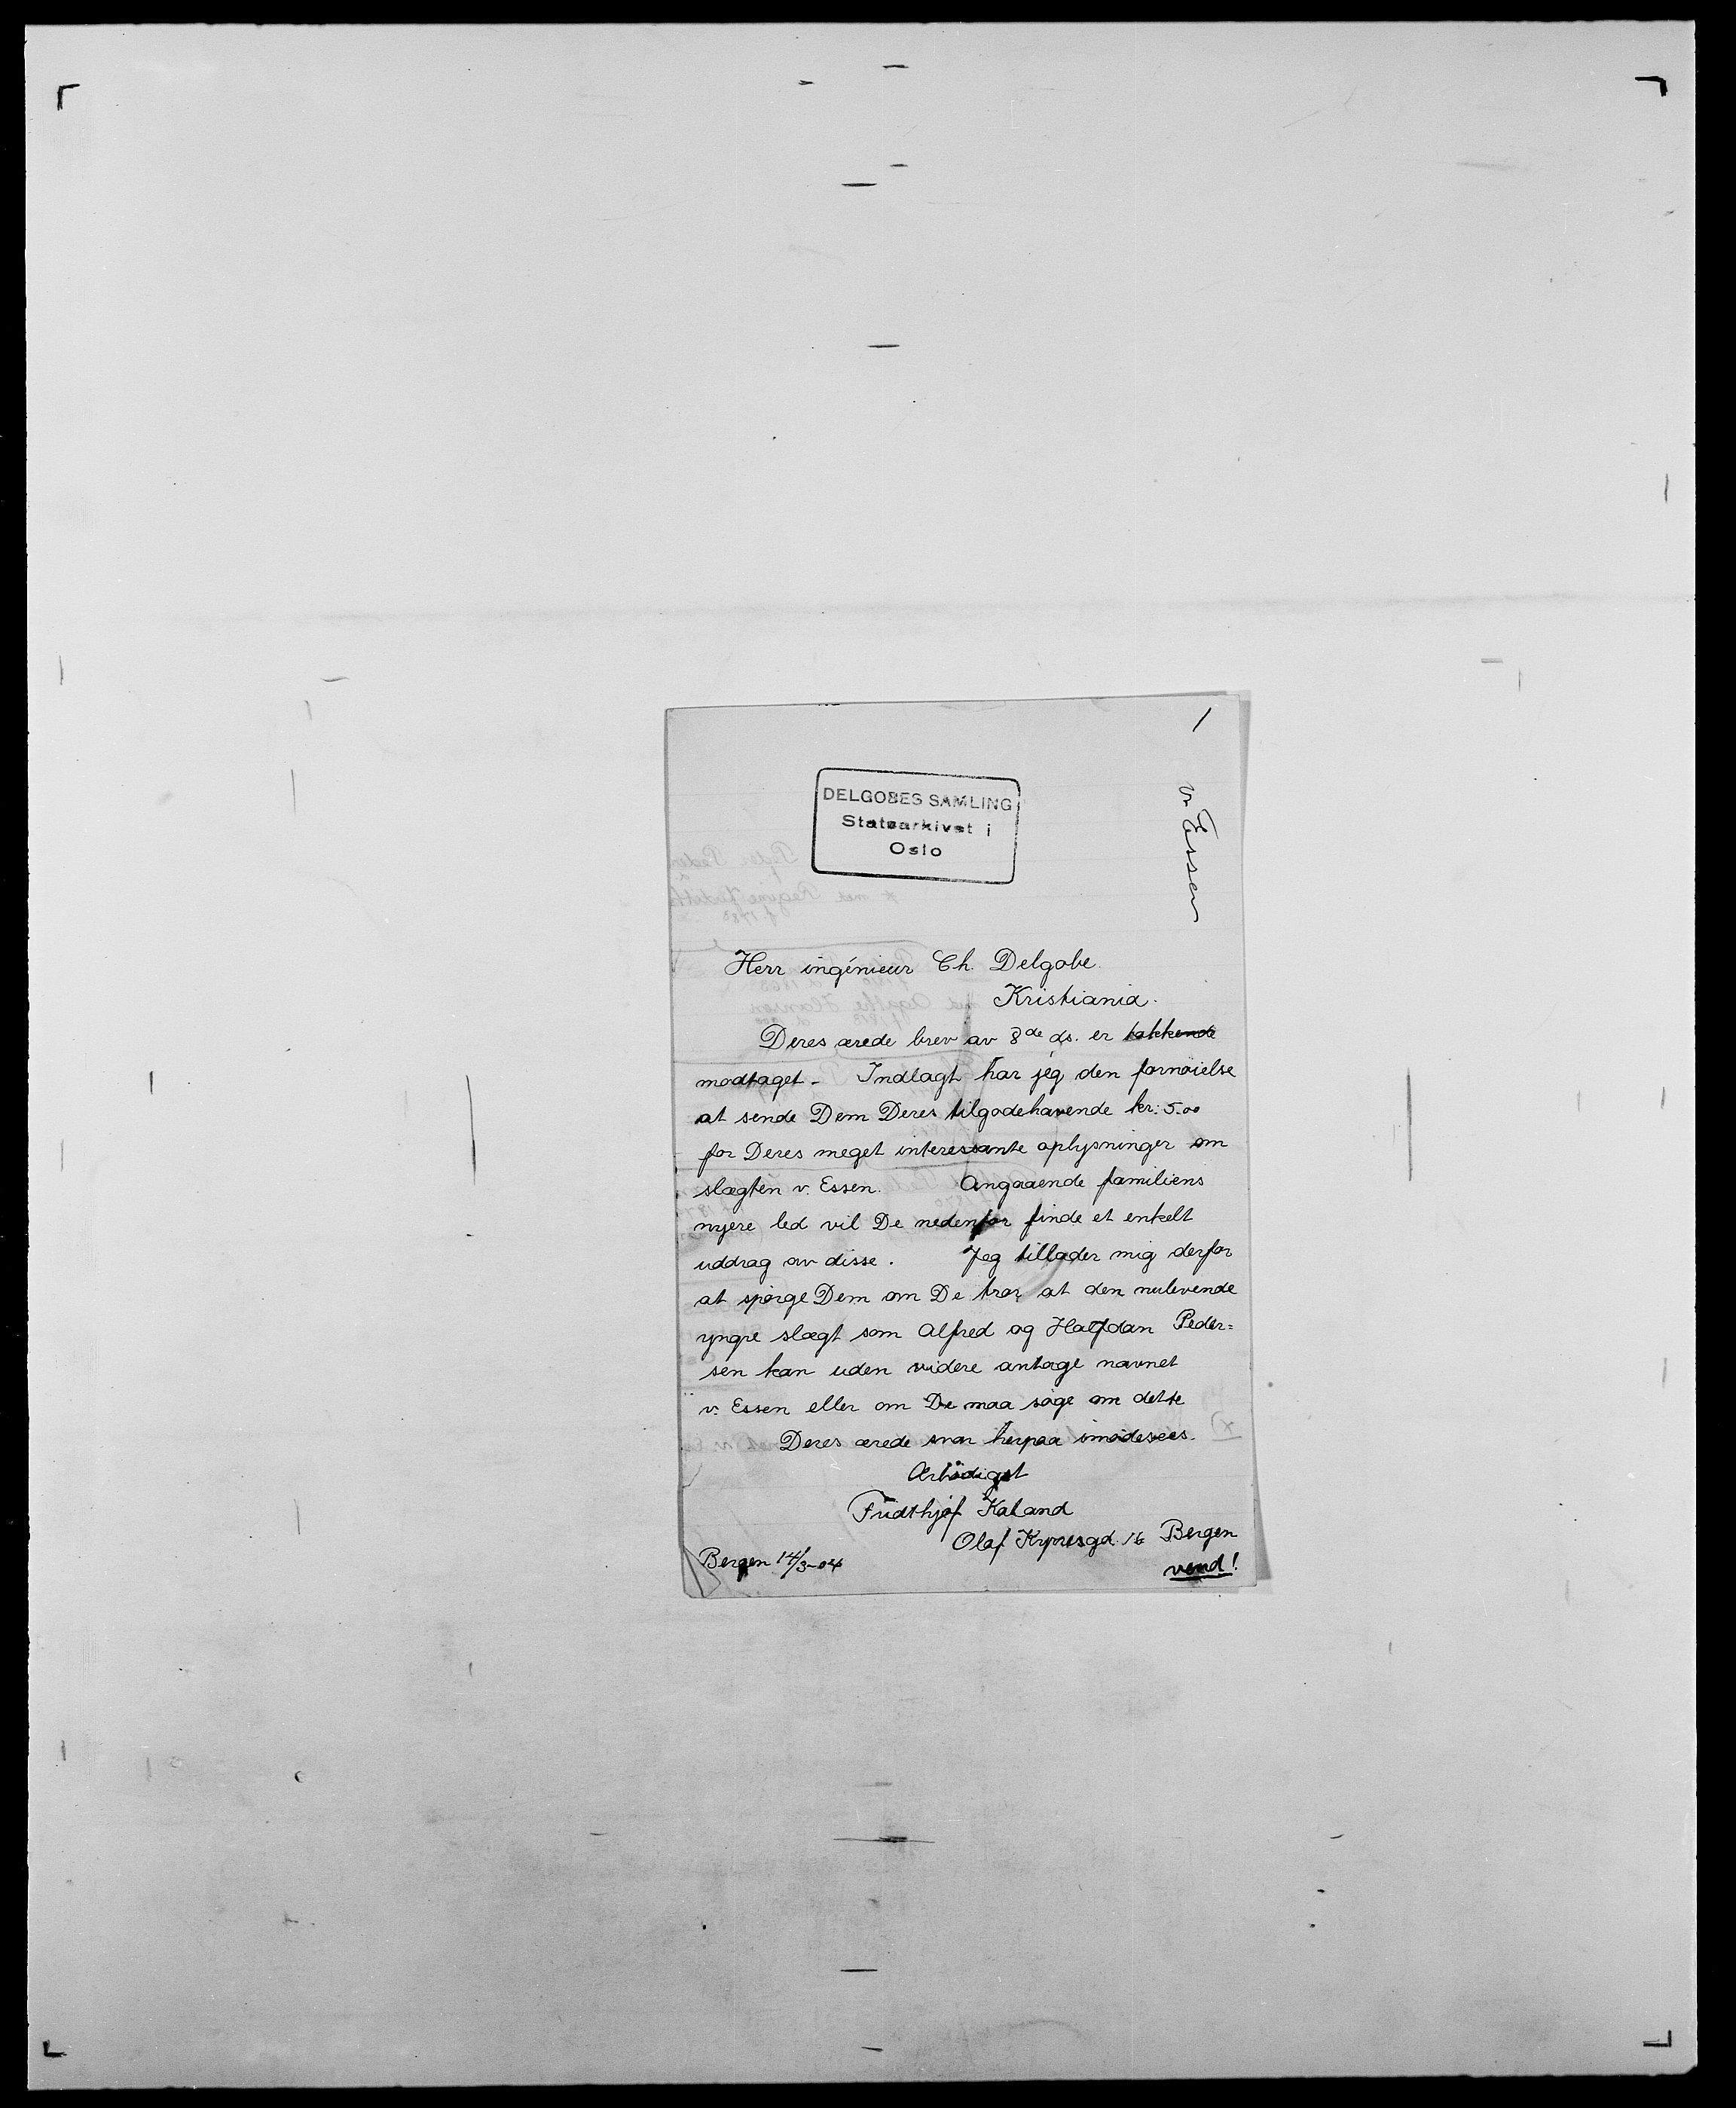 1
v. Essen
DELGOBES SAMLING
Statsarkivet i
Oslo
Herr ingénieur Ch. Delgobe.
Kristiania.
Deres ærede brev av 8de ds. er takkende
modtaget. Indlagt har jeg den fornøielse
at sende Dem Deres tilgodehavende kr. 5.00
for Deres meget interessante oplysninger om
slægten v. Essen. Angaaende familiens
nyere led vil De nedenfor finde et enkelt
uddrag av disse. Jeg tillader mig derfor
at spørge Dem om De tror at den nulevende
yngre slægt som Alfred og Halfdan Peder=
sen kan uden videre antage navnet
v. Essen eller om De maa søge om dette
Deres ærede svar herpaa imødesees.
Ærbødigst
Fridthjof Kaland
Olaf Kyrresgd. 16 Bergen
Bergen 14/3-04
vend!